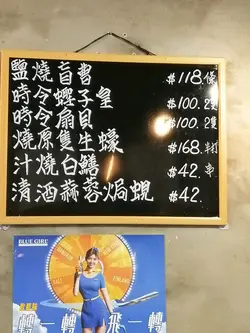 鹽燒盲曹 #118.條
時令蟶子皇 #100.2隻
時令扇貝 #100.2隻
燒原隻生蠔 #168.半打
汁燒白鱔 #42.串
清酒蒜蓉焗蜆 #42.
BLUE GIRL
轉一轉 飛一轉